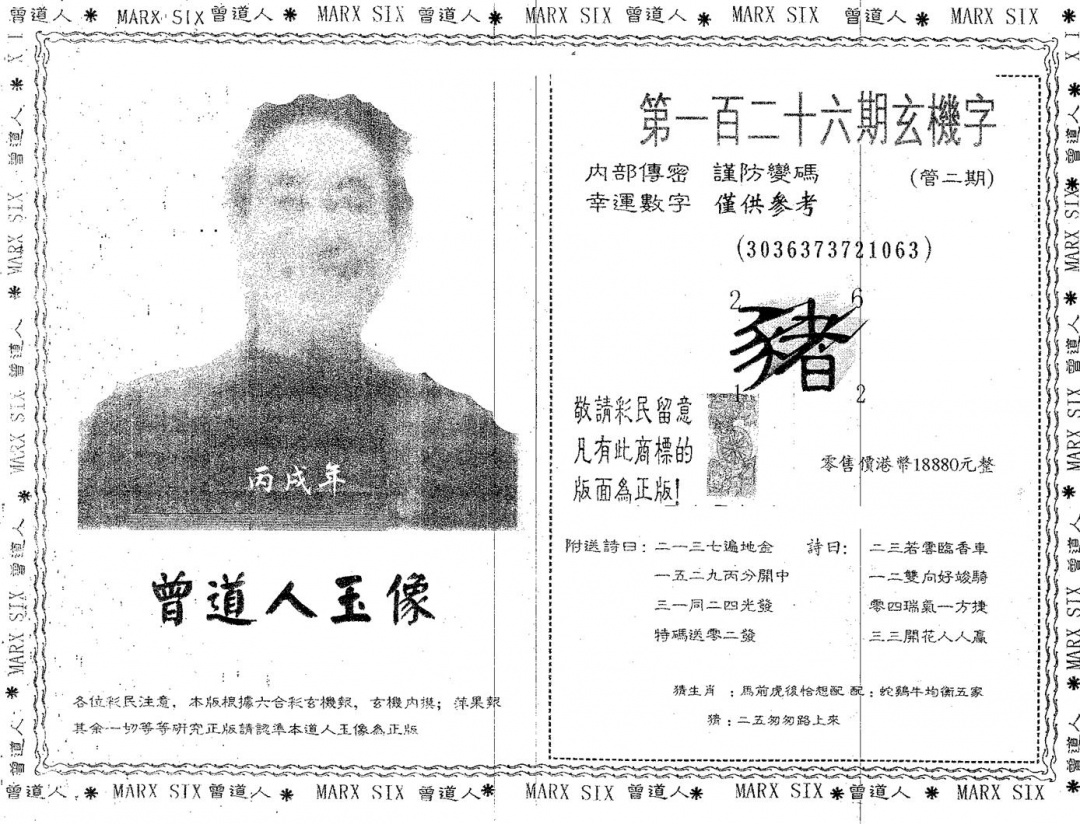 曾道人 * MARX SIX 曾道人 * MARX SIX 曾道人 * MARX SIX 曾道人 * MARX SIX 曾道人 * MARX SIX *
丙戌年
曾道人玉像
各位彩民注意，本版根據六合彩玄機報，玄機內摸；萍果報
其余一切等等研究正版請認準本道人玉像為正版
第一百二十六期玄機字
內部傳密 謹防變碼
(管二期)
幸運數字 僅供參考
(3036373721063)
2 6
豬
1 2
敬請彩民留意
凡有此商標的
版面為正版!
零售價港幣18880元整
附送詩曰：二一三七遍地金
一五二九丙分開中
三一同二四光發
特碼送零二發
詩曰：二三若零臨香車
一二雙向好竣騎
零四瑞氣一方捷
三三開花人人贏
猜生肖 ：馬前虎後恰想配 配：蛇鷄牛均衡五家
猜：二五匆匆路上來
曾道人 * MARX SIX 曾道人 * MARX SIX 曾道人 * MARX SIX 曾道人 * MARX SIX * 曾道人 * MARX SIX